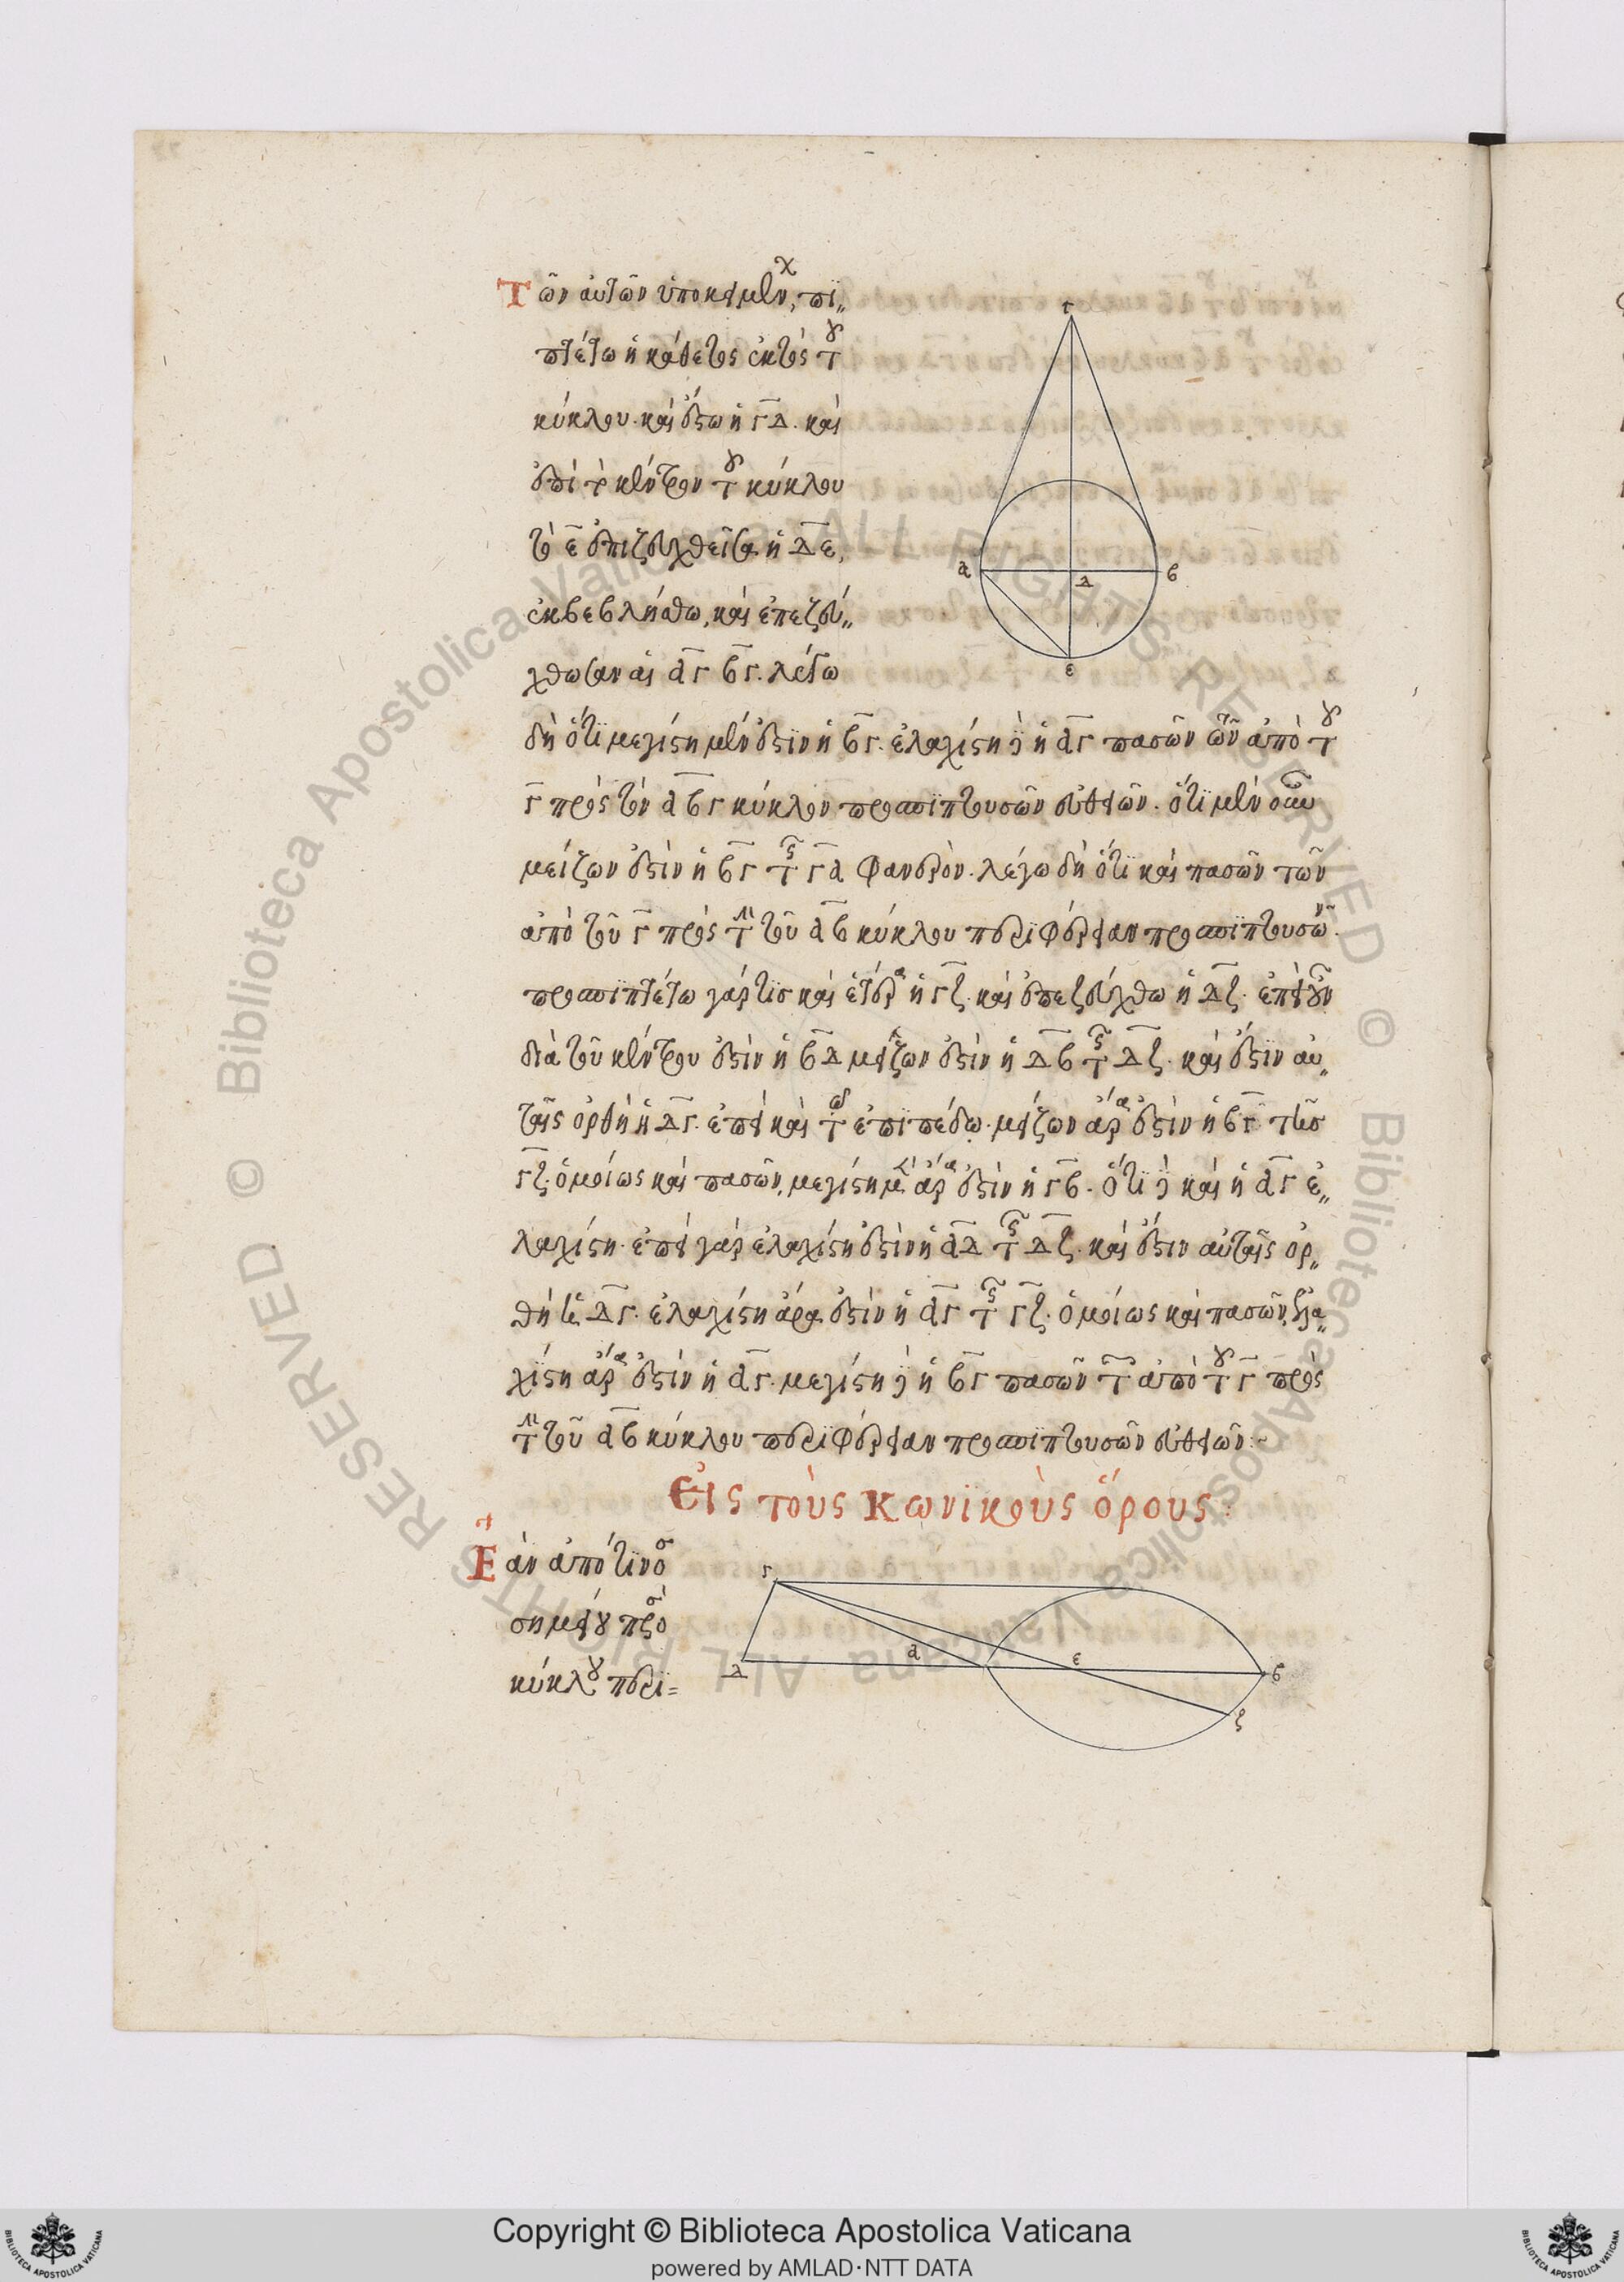 Τῶν αὐτῶν ὑποκειμένων, πι„
πτέτω ἡ κάθετος ἐκτὸς τοῦ
κύκλου. καὶ ἔστω ἡ γδ. καὶ
ἐπὶ τὸ κέντρον τοῦ κύκλου
τὸ ε ἐπιζευχθεῖσα ἡ δε,
ἐκβεβλήσθω, καὶ ἐπεζεύ„
χθωσαν αἱ αγ βγ. λέγω
δὴ ὅτι μεγίστη μέν ἐστιν ἡ βγ. ἐλαχίστη δὲ ἡ αγ πασῶν τῶν ἀπὸ τοῦ
γ πρὸς τὸν αβγ κύκλον προσπιπτουσῶν εὐθειῶν. ὅτι μὲν οὖν
μείζων ἐστὶν ἡ βγ τῆς γα φανερόν. λέγω δὴ ὅτι καὶ πασῶν τῶν
ἀπὸ τοῦ γ πρὸς τὴν τοῦ αβ κύκλου περιφέρειαν προσπιπτουσῶν.
προσπιπτέτω γάρ τις καὶ ἑτέρα ἡ γζ. καὶ ἐπεζεύχθω ἡ δζ. ἐπεὶ οὖν
διὰ τοῦ κέντρου ἐστὶν ἡ βδ μείζων ἐστὶν ἡ δβ τῆς δζ. καὶ ἔστιν αὐ„
ταῖς ὀρθὴ ἡ δγ. ἐπεὶ καὶ τῷ ἐπιπέδῳ. μείζων ἄρα ἐστὶν ἡ βγ τῆς
γζ. ὁμοίως καὶ πασῶν, μεγίστη μὲν ἄρα ἐστὶν ἡ γβ. ὅτι δὲ καὶ ἡ αγ ἐ„
λαχίστη. ἐπεὶ γὰρ ἐλαχίστη ἐστὶν ἡ αδ τῆς δζ. καὶ ἔστιν αὐταῖς ὀρ„
θὴ ἡ δγ. ἐλαχίστη ἄρα ἐστὶν ἡ αγ τῆς γζ. ὁμοίως καὶ πασῶν, ἐλα„
χίστη ἄρα ἐστὶν ἡ αγ. μεγίστη δὲ ἡ βγ πασῶν τῶν ἀπὸ τοῦ γ πρὸς
τὴν τοῦ αβ κύκλου περιφέρειαν προσπιπτουσῶν εὐθειῶν:~
Εἰς τοὺς Κωνικοὺς ὅρους:
Ἐὰν ἀπό τινος
σημείου πρὸς
κύκλου περι=
γ
α
δ
β
ε
γ
δ
α
ε
β
ζ
Copyright © Biblioteca Apostolica Vaticana
powered by AMLAD·NTT DATA